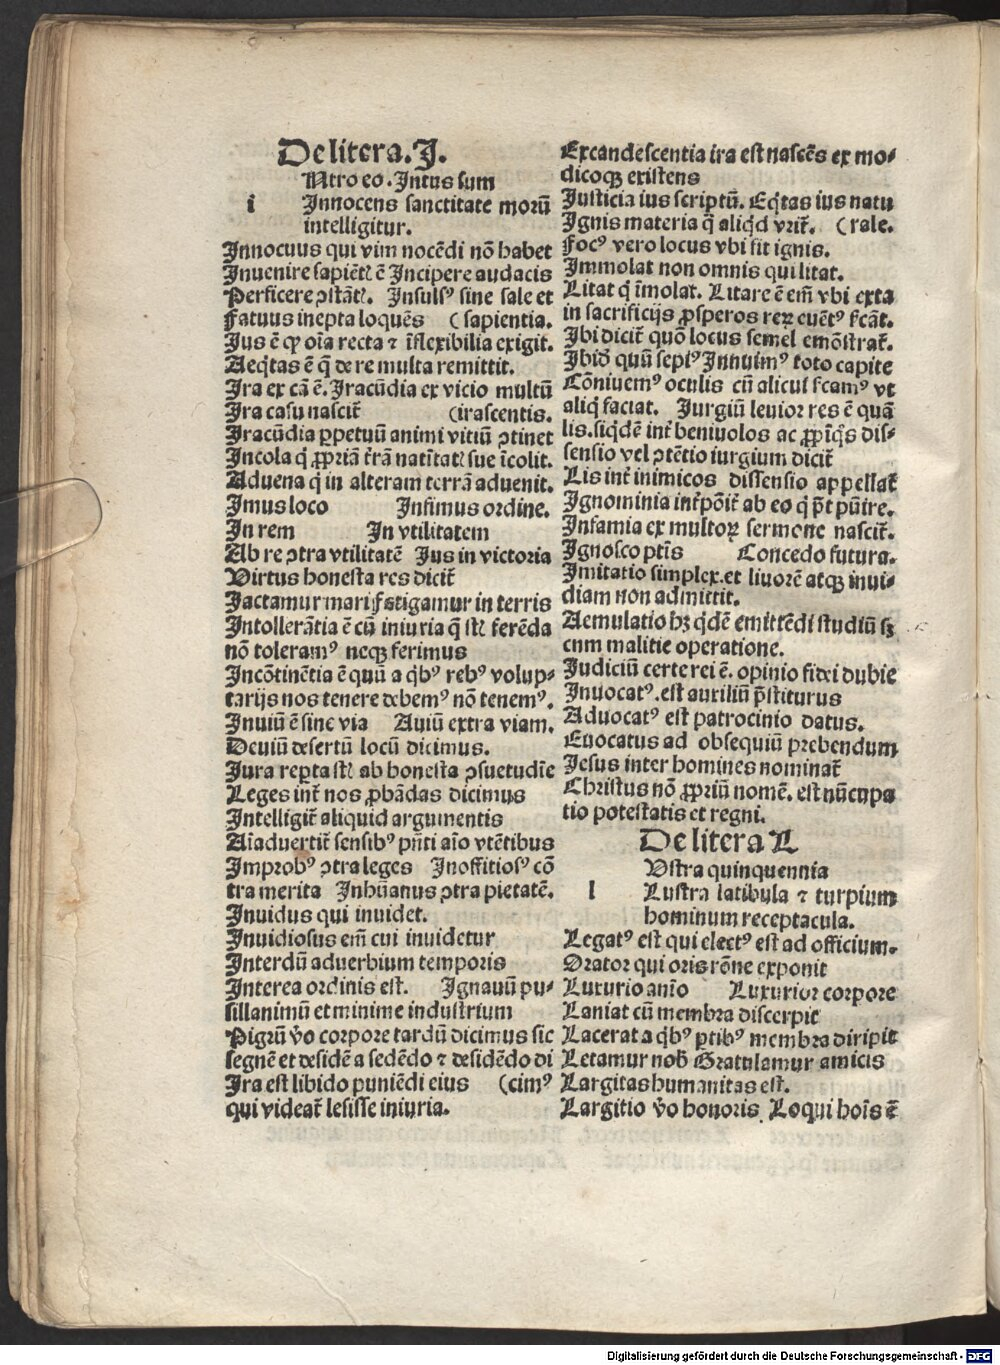 De litera. J.
Ntro eo. Jntus sum
i Jnnocens sanctitate morũ
intelligitur.
Jnnocuus qui vim nocẽdi nõ habet
Jnuenire sapiẽtꝭ ẽ Jncipere audacis
Perficere ꝯstãtꝭ. Jnsulsꝰ sine sale et
Fatuus inepta loquẽs (sapientia.
Jus ẽ qꝫ oĩa recta ⁊ ĩflexibilia exigit.
Aeq̃tas ẽ q̃ de re multa remittit.
Jra ex cã ẽ. Jracũdia ex vicio multũ
Jra casu nascit̃ (irascentis.
Jracũdia ꝑpetuũ animi vitiũ ꝯtinet
Jncola q̃ ꝓpriã t̃rã natiĩtatꝭ sue ĩcolit.
Aduena q̃ in alteram terrã aduenit.
Jmus loco Jnfimus ordine.
Jn rem Jn vtilitatem
Ab re ꝯtra vtilitatẽ Jus in victoria
Virtus honesta res dicit̃
Jactamur mari fatigamur in terris
Jntollerãtia ẽ cũ iniuria q̃ sꝉ ferẽda
nõ toleramꝰ neqꝫ ferimus
Jncõtinẽtia ẽ quũ a q̃bꝰ rebꝰ volup⸗
tarijs nos tenere debemꝰ nõ tenemꝰ.
Jnuiũ ẽ sine via Auiũ extra viam.
Deuiũ desertũ locũ dicimus.
Jura reperta sꝉ ab honesta ꝯsuetudĩe
Leges int̃ nos ꝓbãdas dicimus
Jntelligit̃ aliquid argumentis
Aĩaduertit̃ sensibꝰ pñti aĩo vtẽtibus
Jmprobꝰ ꝯtra leges Jnoffitiosꝰ cõ
tra merita Jnhũanus ꝯtra pietatẽ.
Jnuidus qui inuidet.
Jnuidiosus em̃ cui inuidetur
Jnterdũ aduerbium temporis
Jnterea ordinis est. Jgnauũ pu⸗
sillanimũ et minime industrium
Pigrũ v̾o corpore tardũ dicimus sic
segnẽ et desidẽ a sedẽdo ⁊ desidẽdo di
Jra est libido puniẽdi eius (cimꝰ
qui videat̃ lesisse iniuria.
Excandescentia ira est nascẽs ex mo⸗
dicoqꝫ existens
Justicia ius scriptũ. Eq̃tas ius natu
Jgnis materia q̃ aliqd̾ vrit̃. (rale.
Focꝰ vero locus vbi fit ignis.
Jmmolat non omnis qui litat.
Litat q̃ ĩmolat. Litare ẽ em̃ vbi exta
in sacrificijs ꝓsperos reꝝ euẽtꝰ st̾cãt.
Jbi dicit̃ quõ locus semel emõstrat̃.
Jbid̾ quũ sepiꝰ Jnnuimꝰ toto capite
Cõniuemꝰ oculis cũ alicui st̾camꝰ vt
aliq̃ faciat. Jurgiũ leuior res ẽ quã
lis. siqd̾ẽ int̃ beniuolos ac ꝓpĩq̃s dis⸗
sensio vel ꝯtẽtio iurgium dicit̃
Lis int̃ inimicos dissensio appellat̃
Jgnominia int̃põit̃ ab eo q̃ põt pũire.
Jnfamia ex multoꝝ sermone nascit̃.
Jgnosco pt̃is Concedo futura.
Jmitatio simplex. et liuorẽ atqꝫ inui⸗
diam non admittit.
Aemulatio hꝫ qd̾ẽ emittẽdi studiũ sꝫ
cum malitie operatione.
Judiciũ certe rei ẽ. opinio fidei dubie
Jnuocatꝰ. est auxiliũ p̃stiturus
Aduocatꝰ est patrocinio datus.
Euocatus ad obsequiũ prebendum
Jesus inter homines nominat̃
Christus nõ ꝓpriũ nomẽ. est nũcupa
tio potestatis et regni.
De litera L
Vstra quinquennia
l Lustra latibula ⁊ turpium
hominum receptacula.
Legatꝰ est qui electꝰ est ad officium.
Orator qui oris rõne exponit
Luxurio anĩo Luxurior corpore
Laniat cũ membra discerpit
Lacerat a q̃bꝰ ꝑtibꝰ membra diripit
Letamur nob̾ Gratulamur amicis
Largitas humanitas est.
Largitio v̾o honoris. Loqui hoĩs ẽ
Digitalisierung gefördert durch die Deutsche Forschungsgemeinschaft - DFG